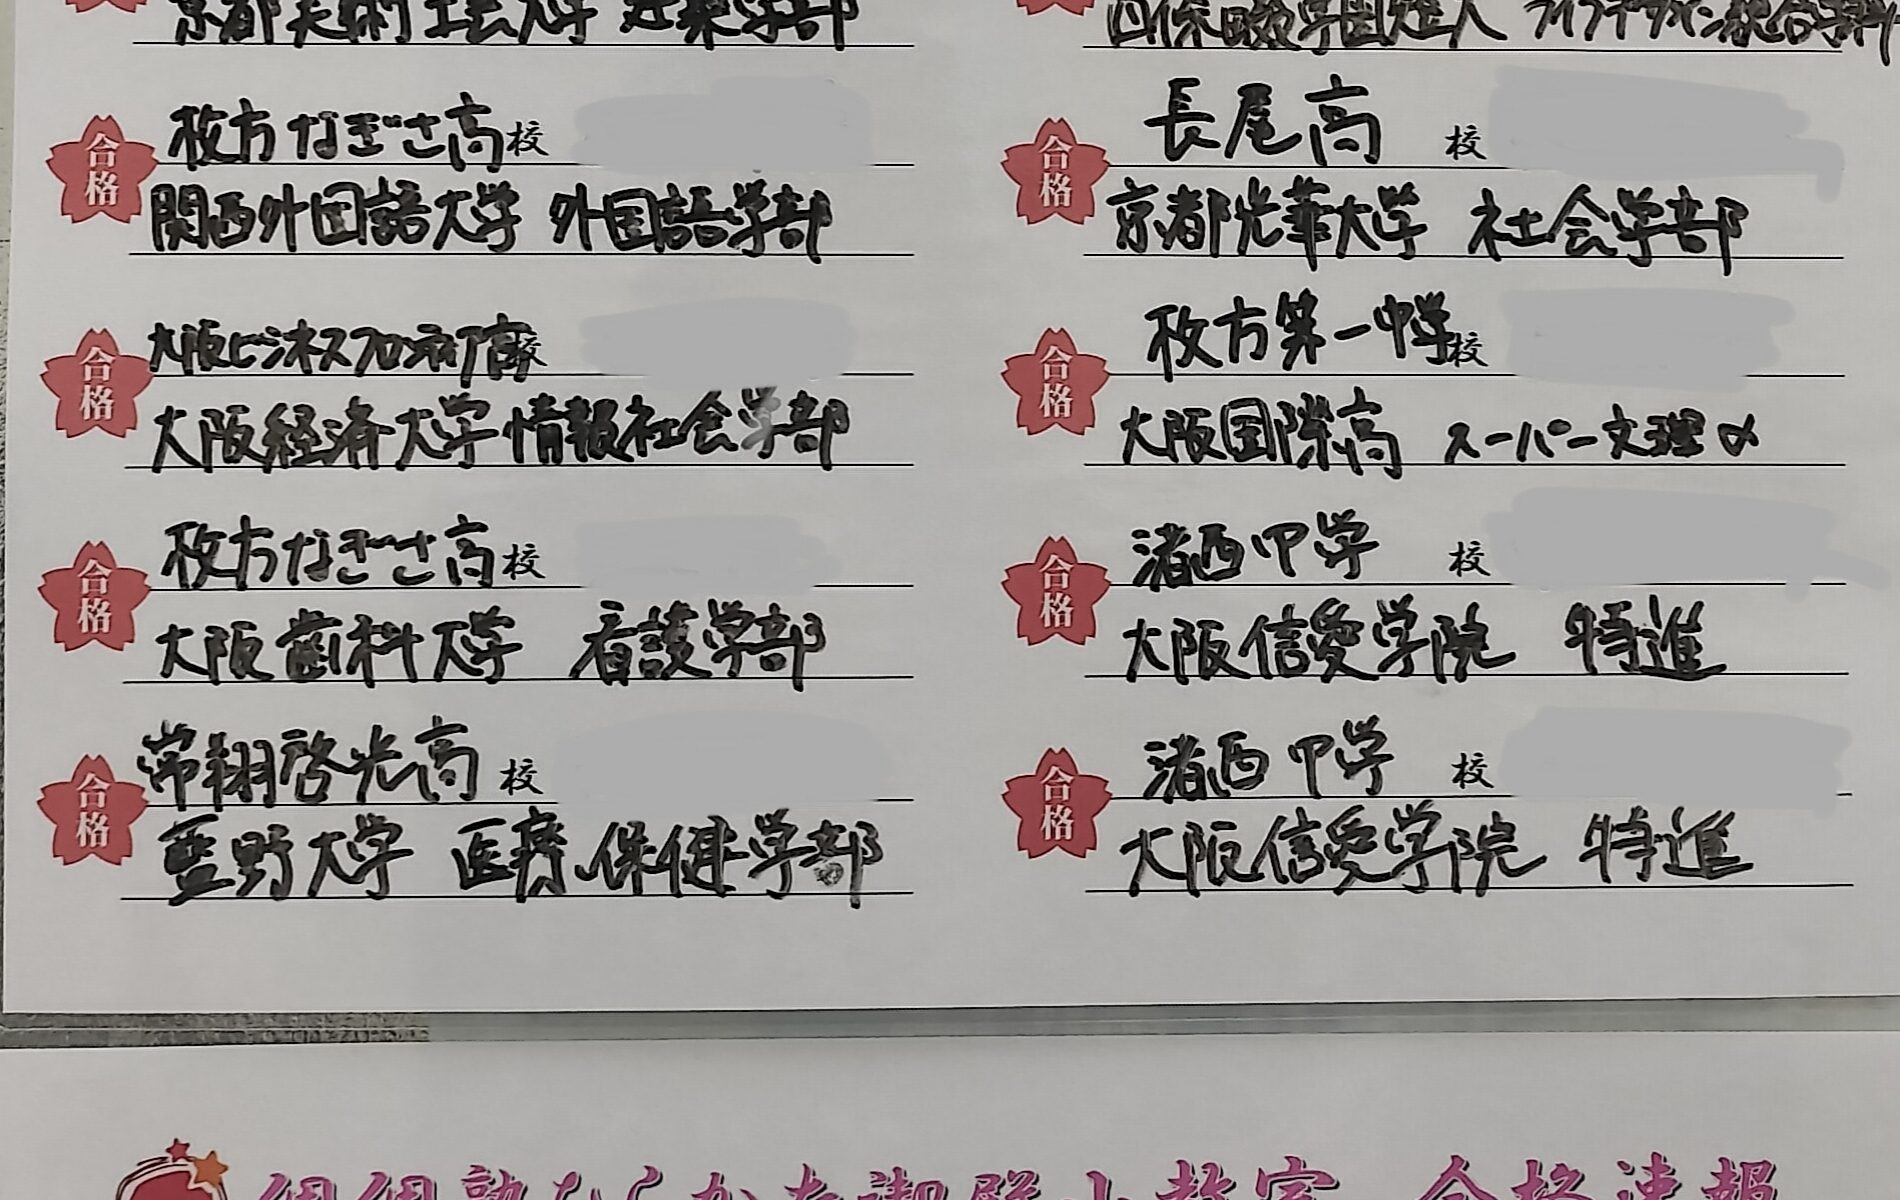 京都美術工芸大学 建築学部
合格 枚方なぎさ高校
関西外国語大学 外国語学部
合格 大阪ビジネスフロンティア高校
大阪経済大学 情報社会学部
合格 枚方なぎさ高校
大阪歯科大学 看護学部
合格 常翔啓光高校
藍野大学 医療保健学部
四條畷学園短大 ライフデザイン総合学科
合格 長尾高校
京都光華大学 社会学部
合格 枚方第一中学校
大阪国際高 スーパー文理α
合格 渚西中学校
大阪信愛学院 特進
合格 渚西中学校
大阪信愛学院 特進
個個塾ならかた御殿山教室 合格速報